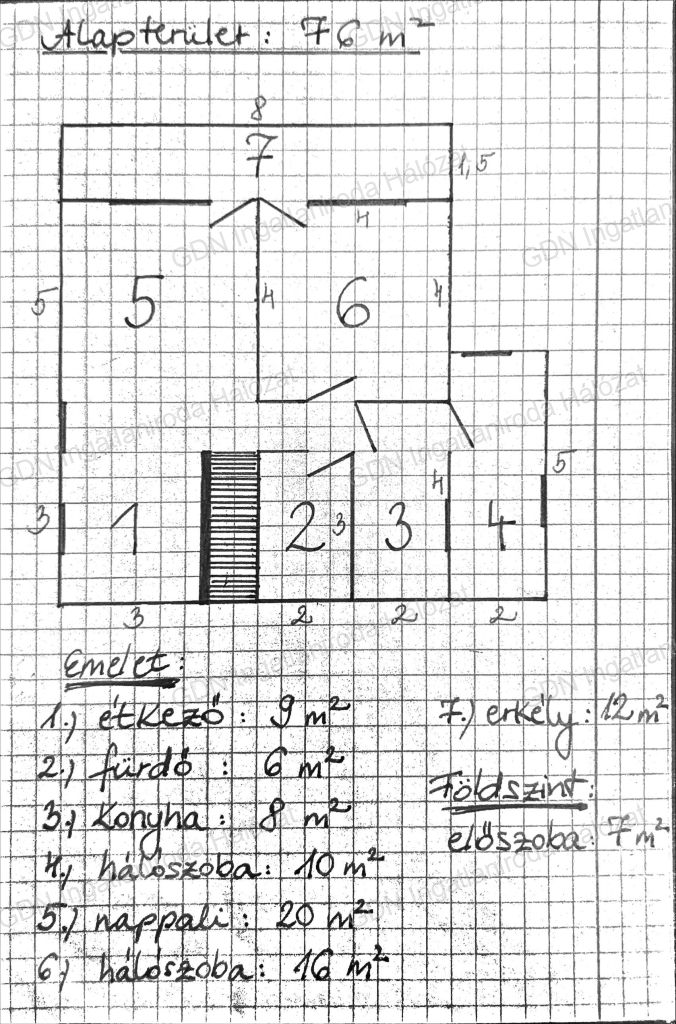 Alapterület: 76 m²
8
7
1,5
4
5
5
4
6
4
5
3
1
2
3
4
3
4
3
2
2
2
Emelet:
1.) étkező: 9 m²
2.) fürdő: 6 m²
3.) Konyha: 8 m²
4.) hálószoba: 10 m²
5.) nappali: 20 m²
6.) hálószoba: 16 m²
7.) erkély: 12 m²
Földszint:
előszoba: 7 m²
GDN Ingatlaniroda Hálózat